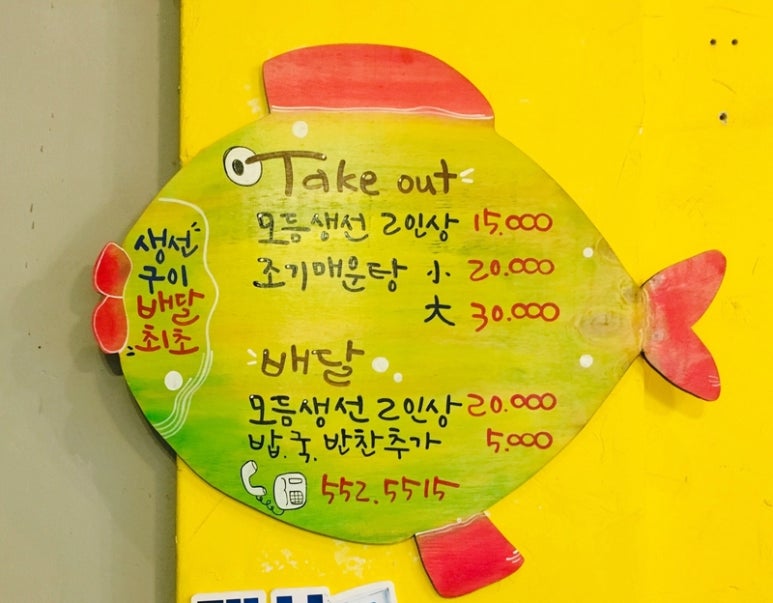 Take out
모듬생선 2인상 15.000
조기매운탕 小 20.000
大 30.000
생선
구이
배달
최초
배달
모듬생선 2인상 20.000
밥.국.반찬추가 5.000
552.5515